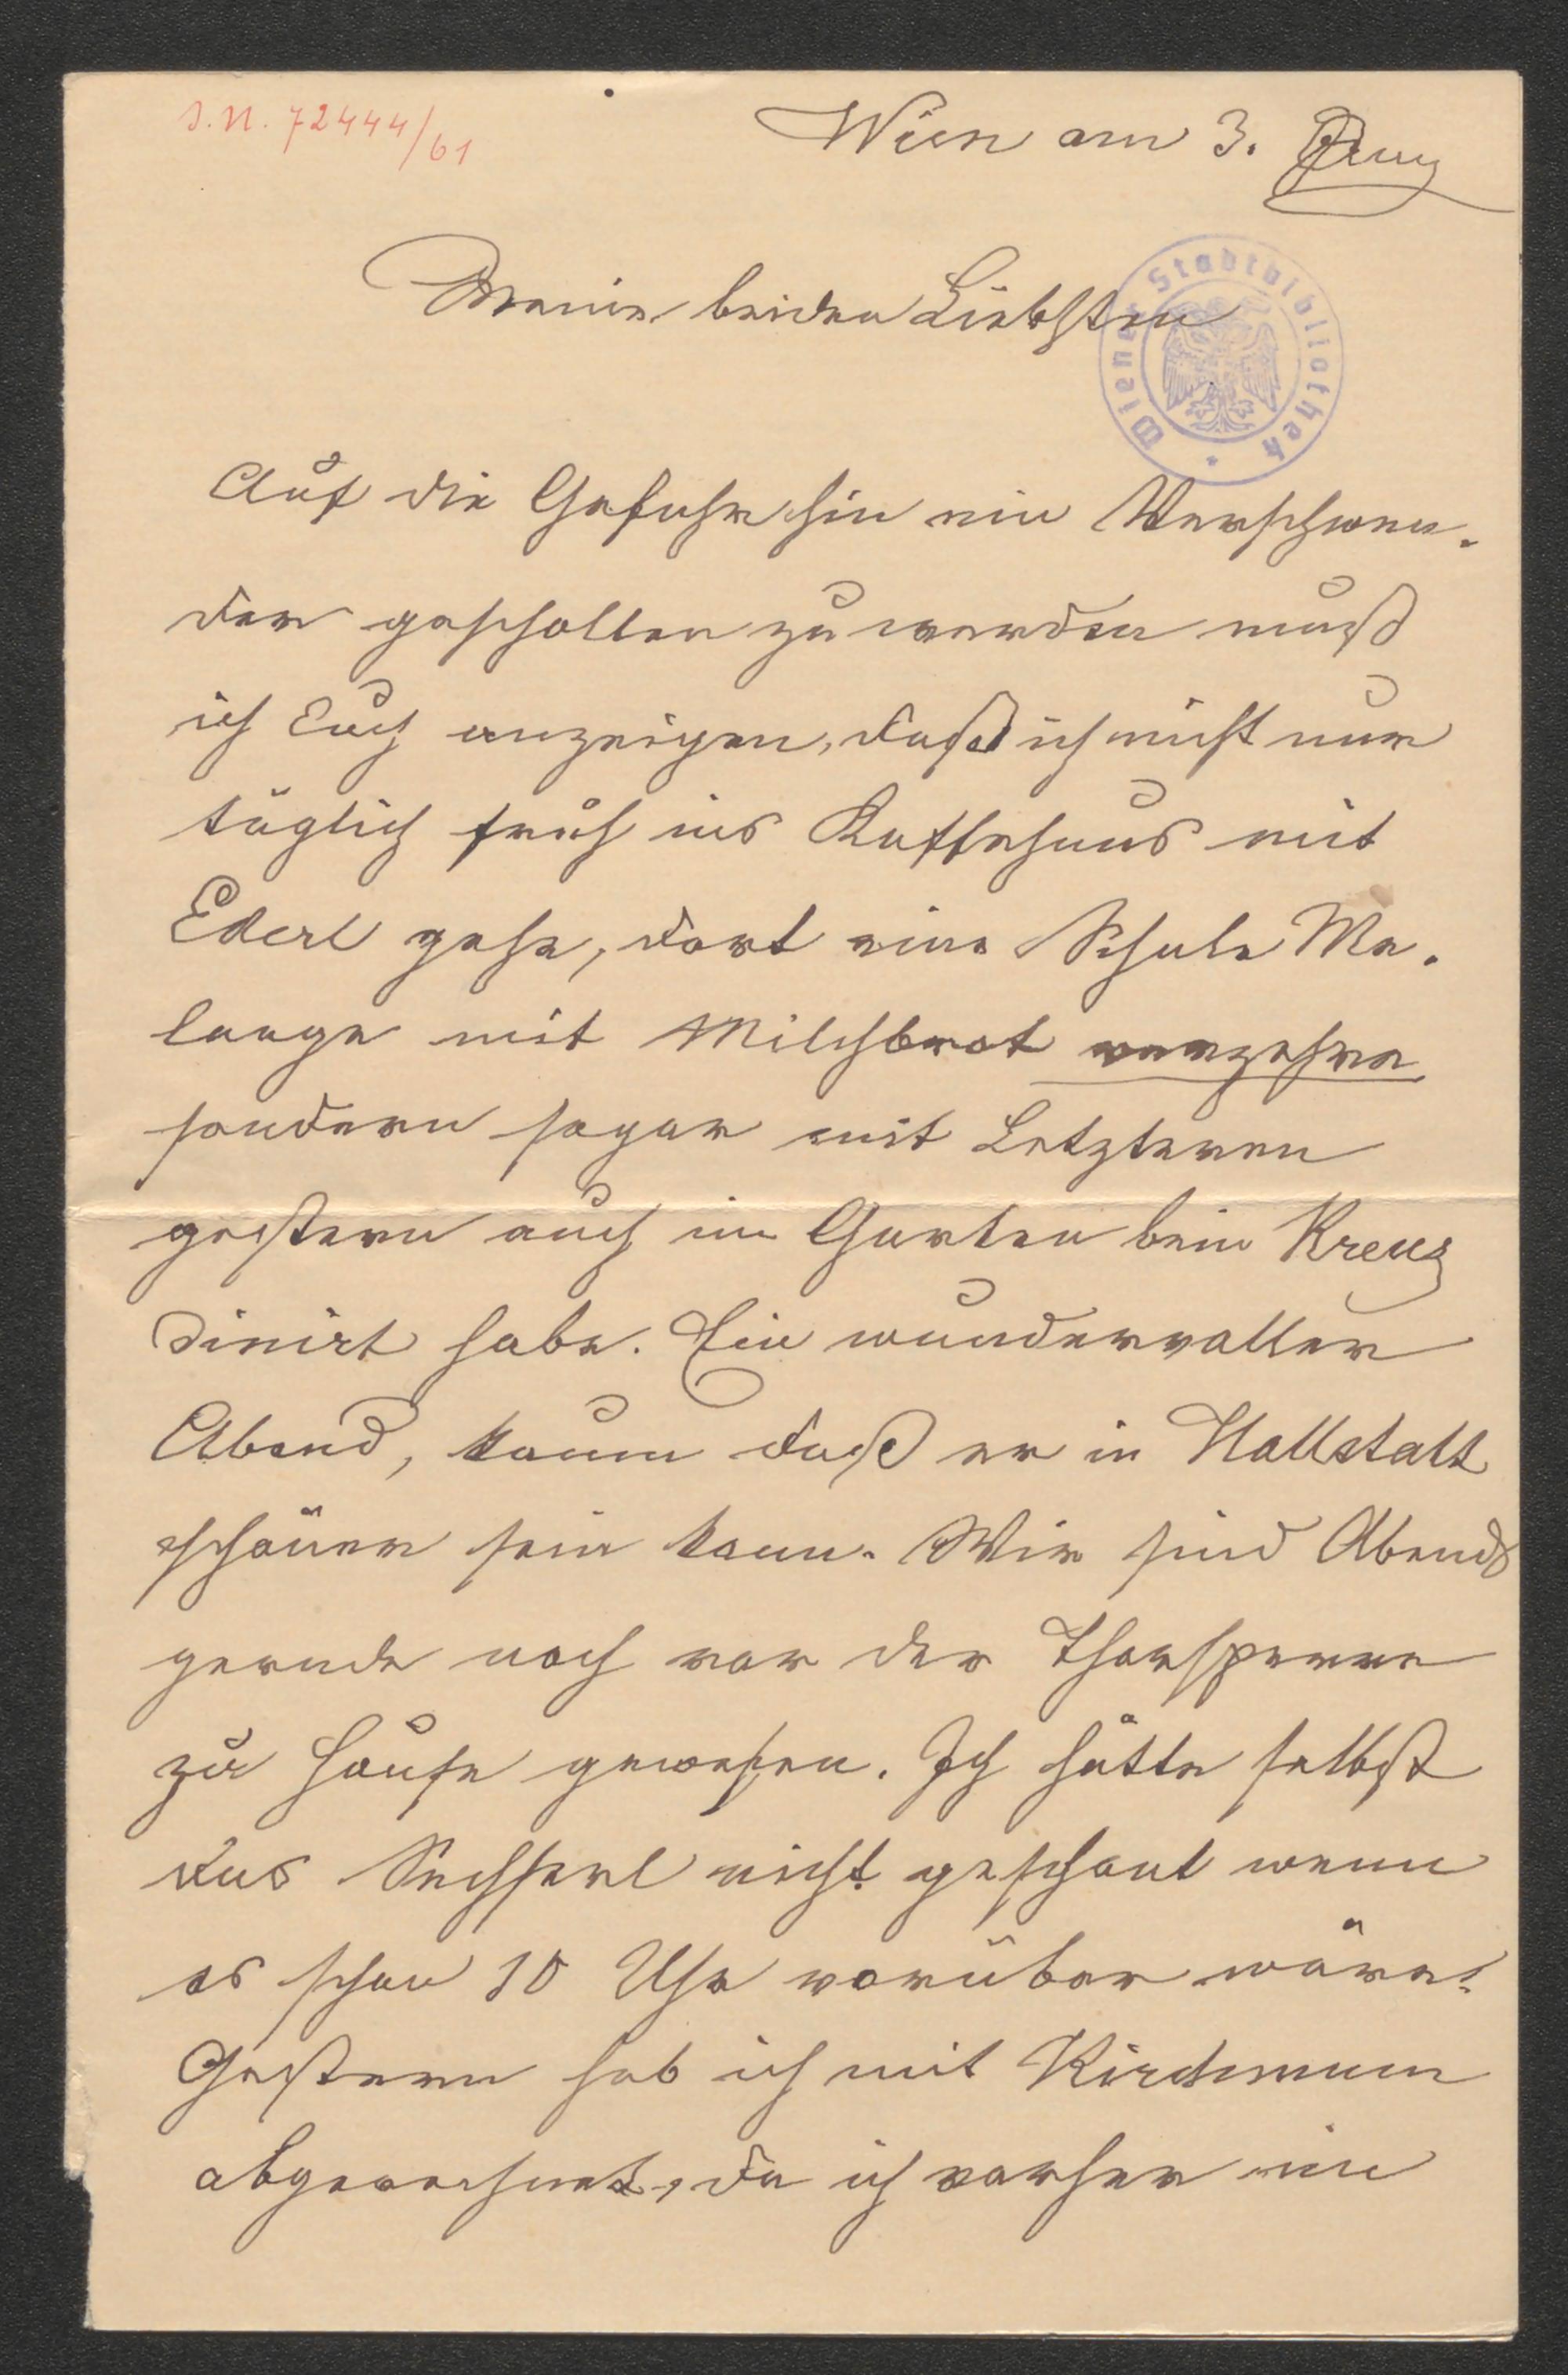 J.N. 72444/61
Wien am 3. Aug
Wiener Stadtbibliothek
Meine beiden Liebsten
Auf die Gefahr hin ein Verschwen-
der gescholten zu werden muß
ich Euch anzeigen, daß ich nicht nur
täglich früh ins Kaffehaus mit
Ederl gehe, dort eine Schale Me-
lange mit Milchbrot verzehre
sondern sogar mit Letzteren
gestern auch im Garten beim Kreuz
dinirt habe. Ein wundervoller
Abend, kaum daß er in Hallstatt
schöner sein kann. Wir sind Abends
gerade noch vor der Thorsperre
zu Hause gewesen. Ich hätte selbst
das Sechserl nicht gescheut wenn
es schon 10 Uhr vorüber wäre.
Gestern hab ich mit Kirchmann
abgerechnet, da ich vorher im